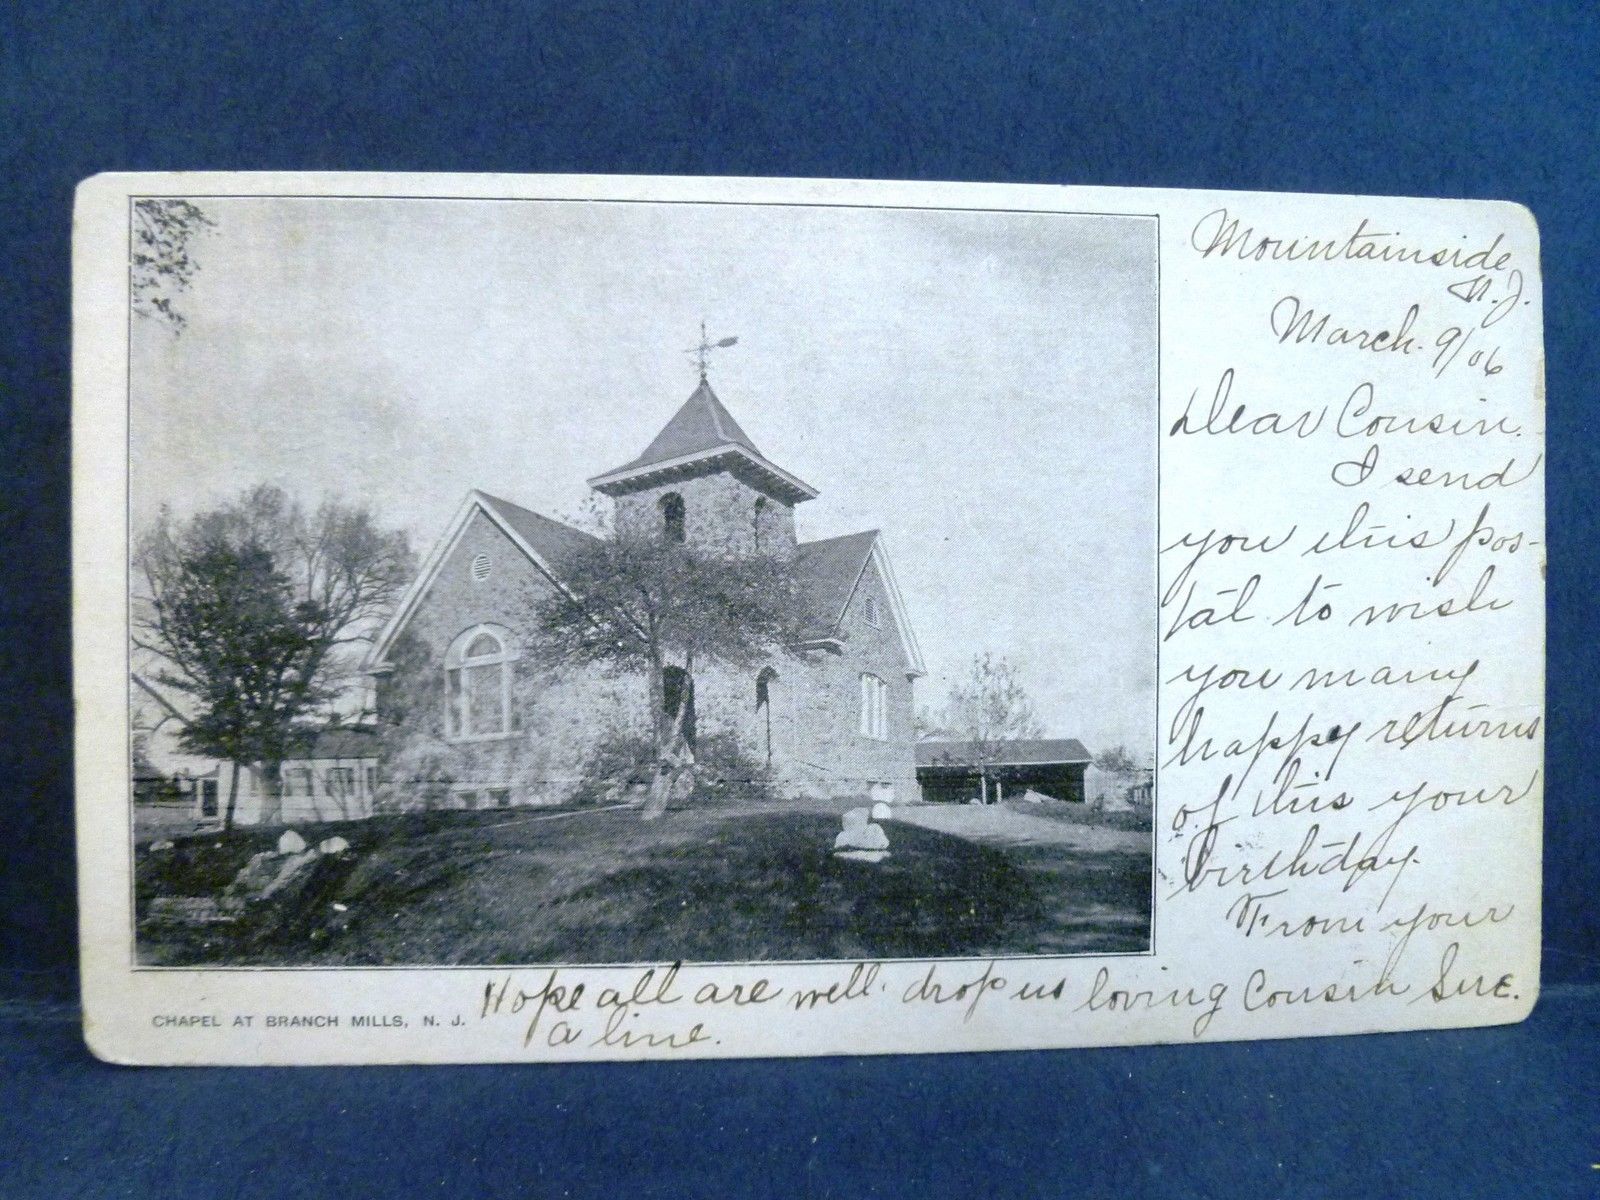 Mountainside
N.J.
March. 9/06
Dear Cousin.
I send
you this pos-
tal to wish
you many
happy returns
of this your
birthday.
From your
loving Cousin Sue.
Hope all are well. drop us
a line.
CHAPEL AT BRANCH MILLS, N. J.